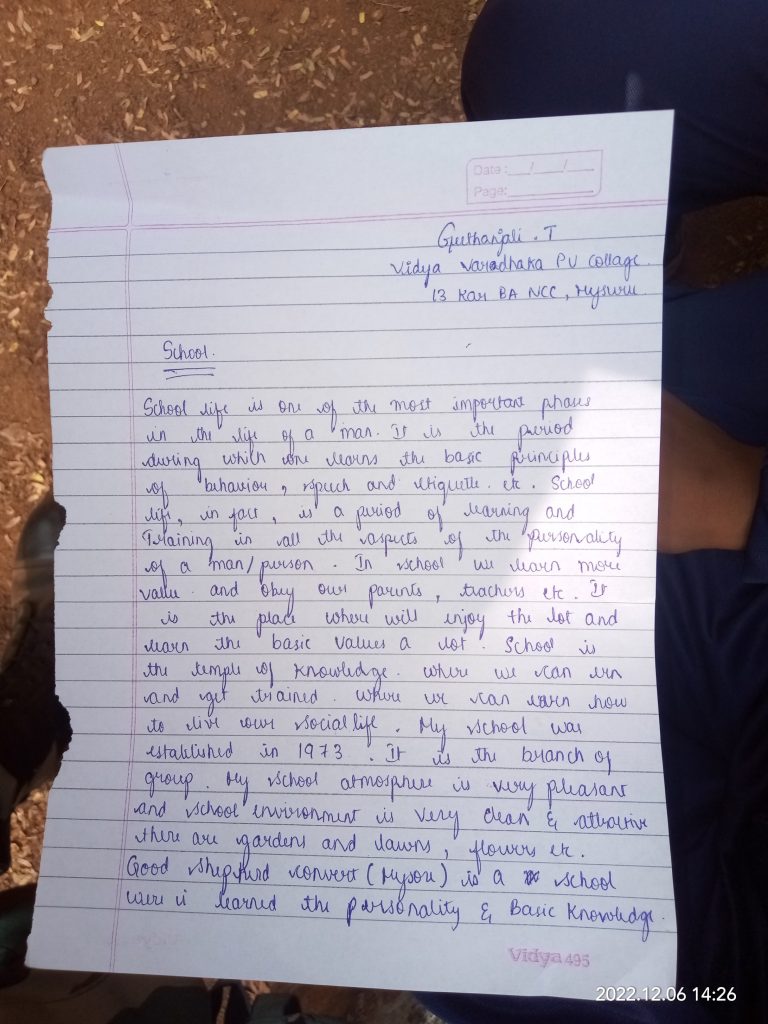 Date :__/__/__
Page:
Geethanjali . T
Vidya Varadhaka PU Collage.
13 Kar BA NCC, Mysuru
School.
School life is one of the most important phases
in the life of a man. It is the period
during which one learns the basic principles
of behaviour, speech and etiquette. etc. School
life, in fact, is a period of learning and
Training in all the aspects of the personality
of a man/person. In school we learn more
value and obey our parents, teachers etc. It
is the place where will enjoy the lot and
learn the basic values a lot. School is
the temple of knowledge. where we can ern
and get trained. where we can learn how
to live our social life. My school was
established in 1973. It is the branch of
group. My school atmosphere is very pleasant
and school environment is very clean & attractive
there are gardens and lawns, flowers etc.
Good Shepherd convert (Mysore) is a school
were i learned the personality & Basic Knowledge.
Vidya 495
2022.12.06 14:26